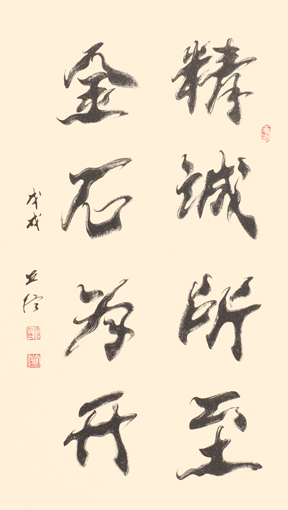 精誠所至
金石為开
戊戌